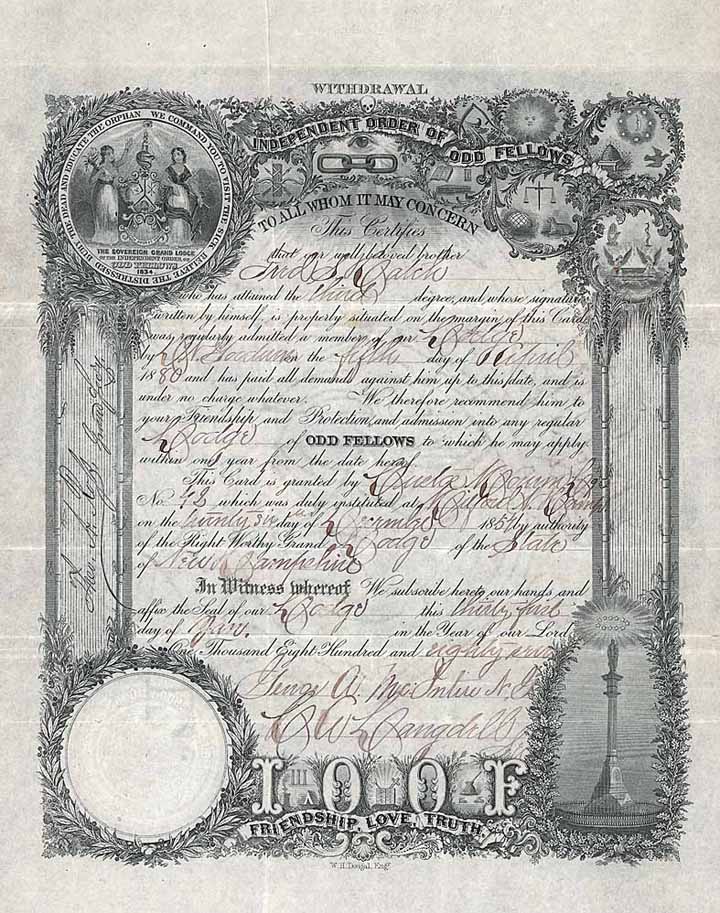 WITHDRAWAL
INDEPENDENT ORDER OF ODD FELLOWS
WE COMMAND YOU TO VISIT THE SICK, RELIEVE THE DISTRESSED, BURY THE DEAD AND EDUCATE THE ORPHAN
THE SOVEREIGN GRAND LODGE
OF THE INDEPENDENT ORDER OF
ODD FELLOWS
1834
TO ALL WHOM IT MAY CONCERN
This Certifies
that our well beloved brother
Fred
who has attained the third degree, and whose signature
written by himself, is properly situated on the margin of this Card
was regularly admitted a member of our Lodge
by the fifth day of
1880 and has paid all demands against him up to this date, and is
under no charge whatever. We therefore recommend him to
your Friendship and Protection, and admission into any regular
Lodge of ODD FELLOWS to which he may apply
within one year from the date hereof
This Card is granted by
No. which was duly instituted at Milford N. Hamp
on the twenty six day of December 185 by authority
of the Right Worthy Grand Lodge of the State
of New Hampshire
In Witness whereof We subscribe hereto our hands and
affix the Seal of our Lodge this thirty first
day of in the Year of our Lord
One Thousand Eight Hundred and eighty seven
N. G.
Langdell
I O O F
FRIENDSHIP, LOVE, TRUTH.
W. H. Dougal, Eng.